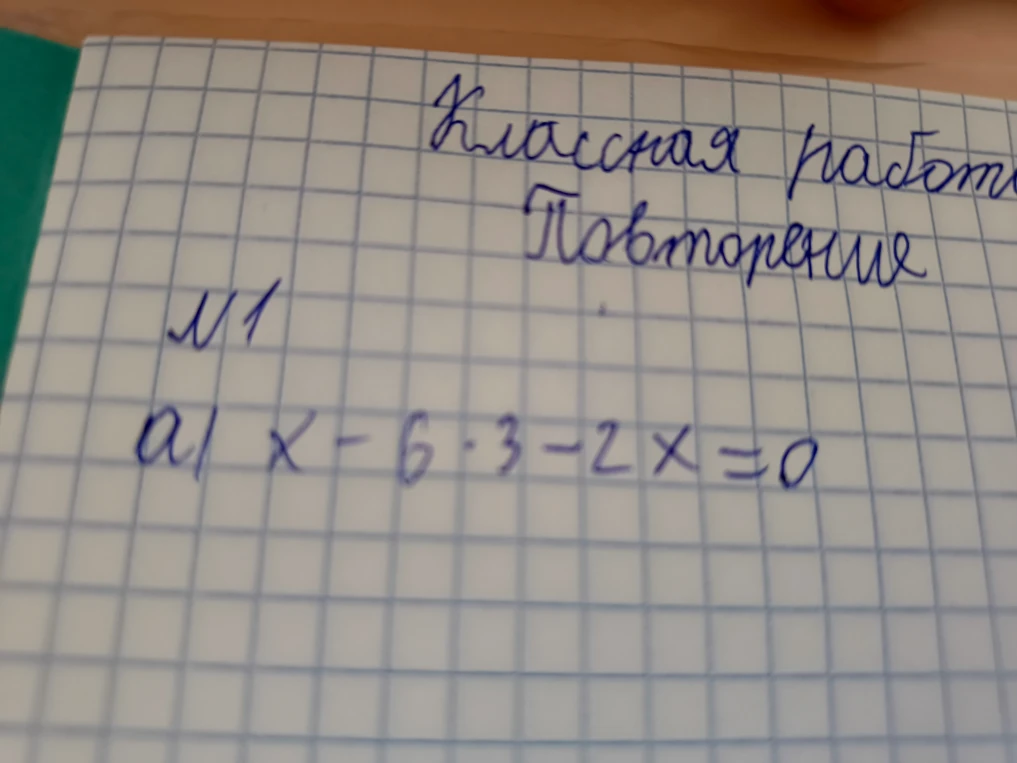 Классная работ
Повторение
N1
а) x - 6 · 3 - 2x = 0